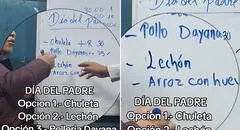 30.00
Día del Padre
- Chuleta + R 30
- Pollo Dayana 35
- Lechón
- Arroz con
DÍA DEL PADRE
Opción 1.- Chuleta
Opción 2.- Lechón
Opción 3.- Pollería Dayana
Día del Padre
- Pollo Dayana 30
- Lechón
- Arroz con huev
DÍA DEL PADRE
Opción 1.- Chuleta
Opción 2.- Lechón